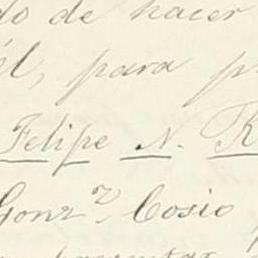 do de hacer
él, para p
Felipe N. R
Gonz.z Cosio